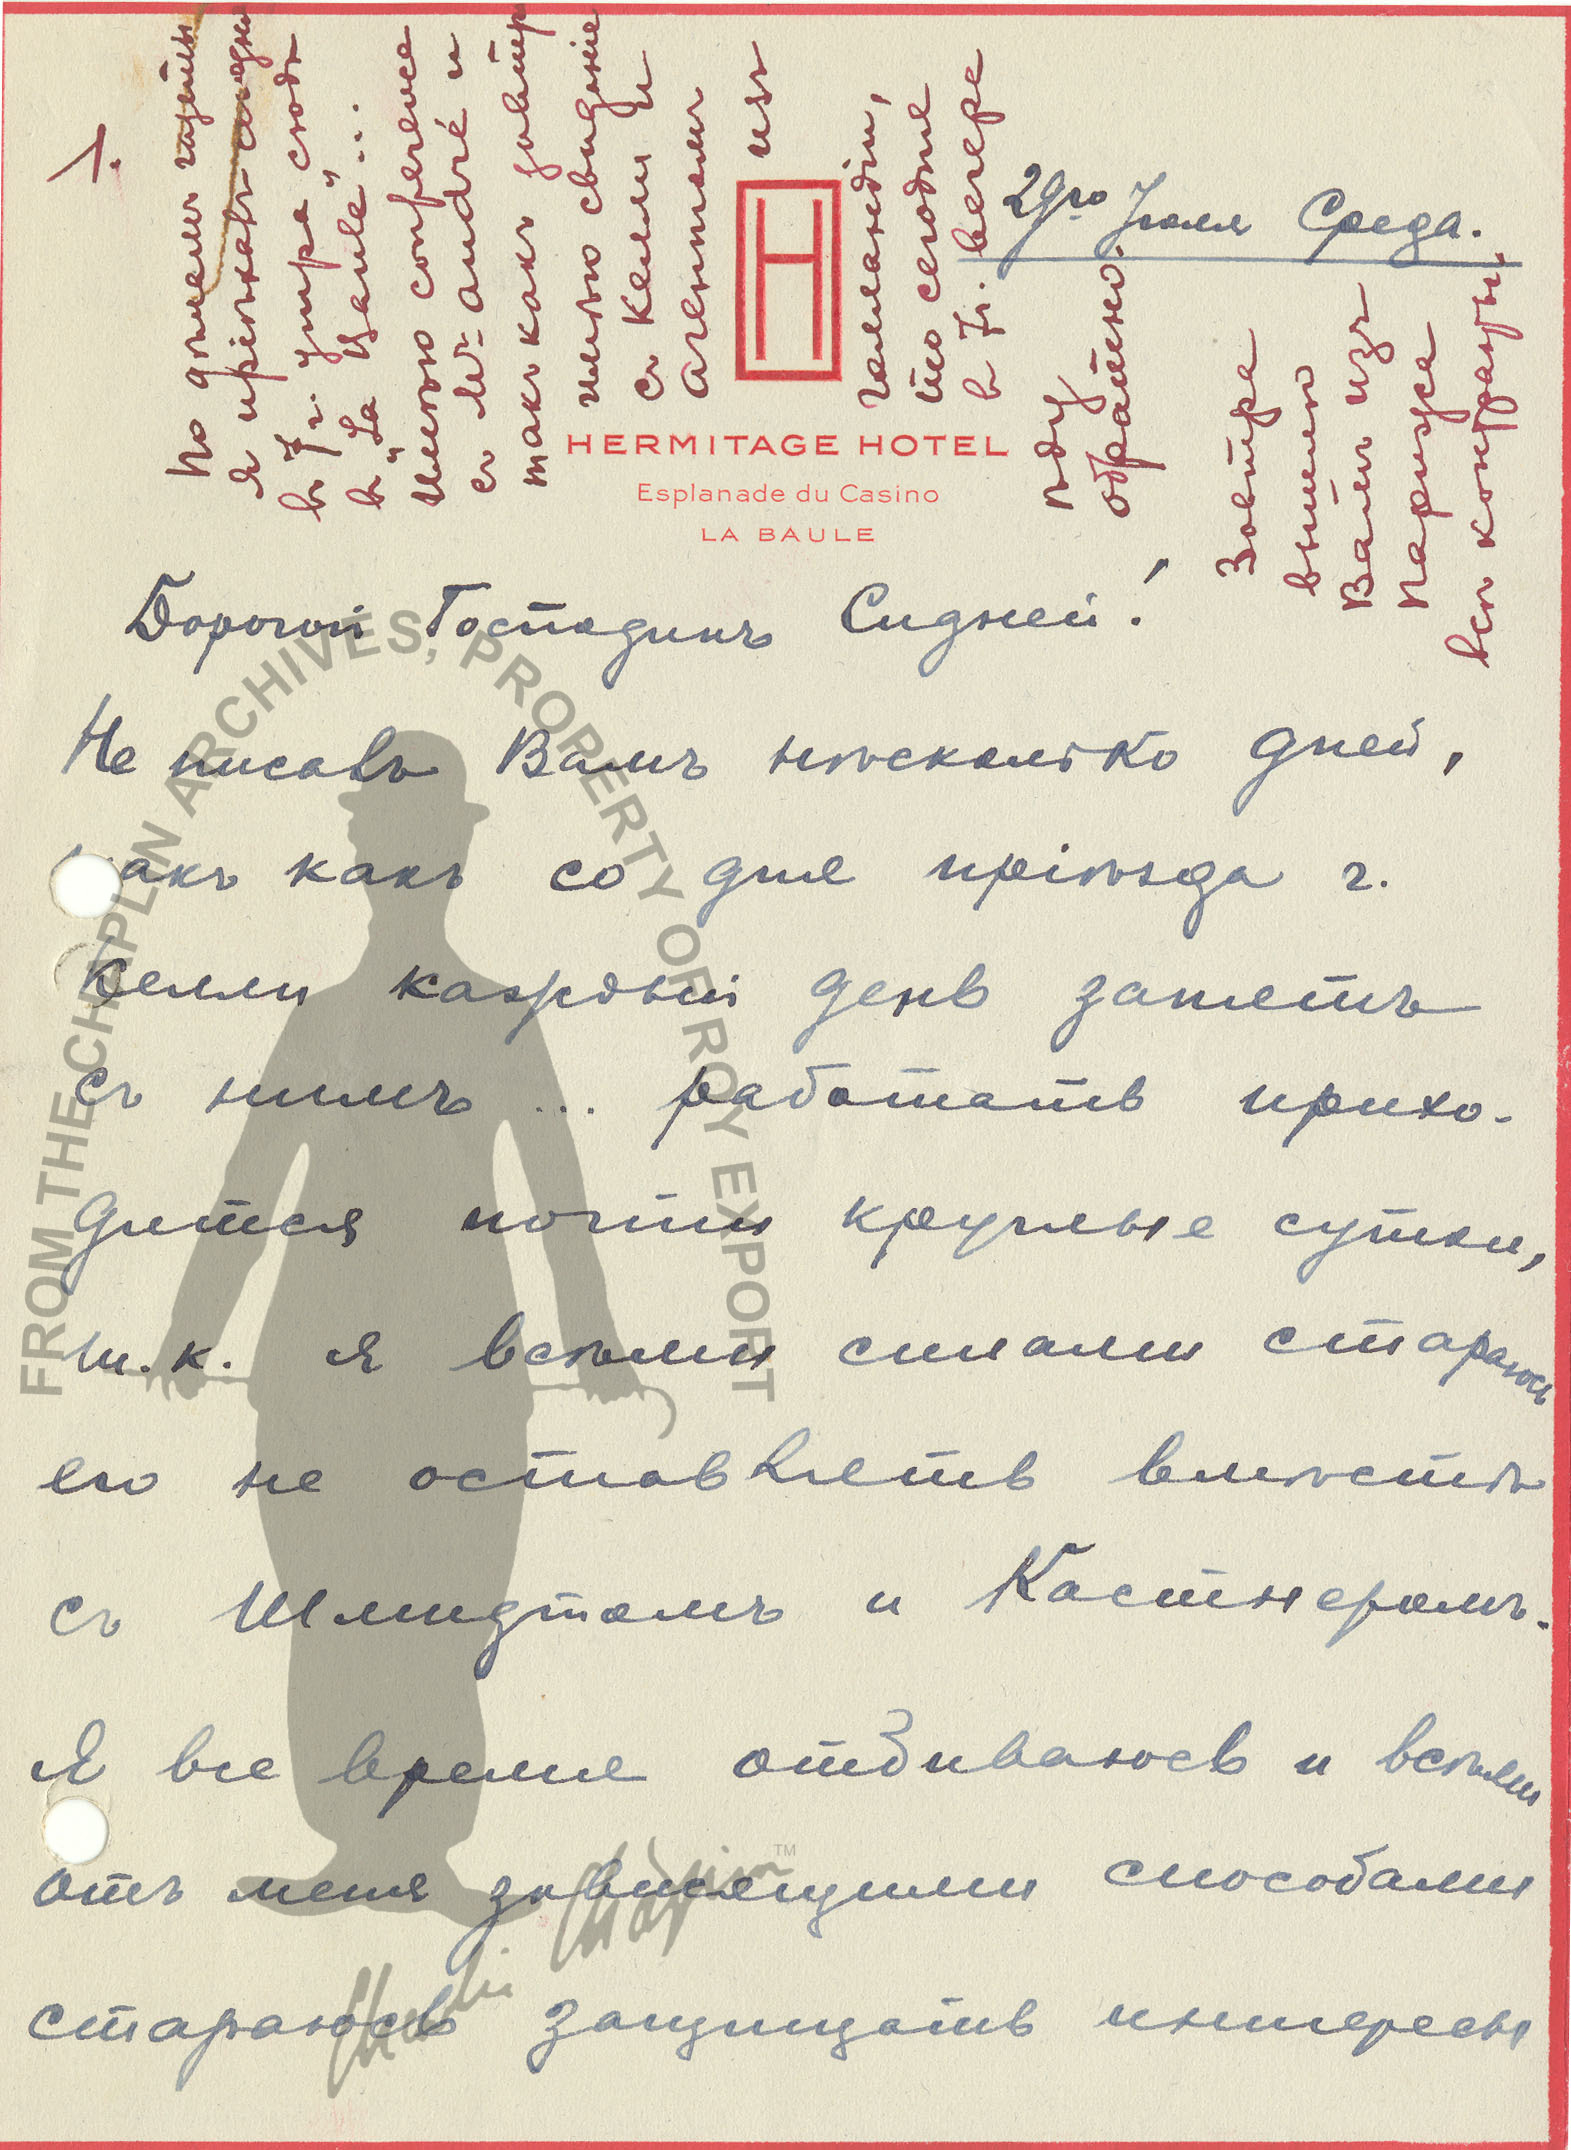 1.
По дѣламъ газеты
я пріѣхавъ сегодня
въ 7 ч. утра сюда
въ "La Baule"...
Цѣлью conference
съ Mr. André и
такъ какъ завтра
цѣлью свиданіе
съ Келли и
агентомъ изъ
Голландіи,
то сегодня
в 7ч. вечера
ѣду
обратно.
Завтра
вышлю
Вамъ изъ
Парижа
всѣ контракты.
29го Іюля Среда.
HERMITAGE HOTEL
Esplanade du Casino
LA BAULE
Дорогой Господинъ Сидней!
Не писавъ Вамъ нѣсколько дней,
такъ какъ со дня пріѣзда г.
Келли каждый день занятъ
съ нимъ ... работать прихо-
дится почти круглые сутки,
т.к. я всѣми силами стараюсь
его не оставлять вмѣстѣ
съ Шмидтомъ и Кастнеромъ.
Я все время отбиваюсь и всѣми
отъ меня зависящими способами
стараюсь защищать интересы
FROM THE CHAPLIN ARCHIVES, PROPERTY OF ROY EXPORT
Charlie Chaplin TM